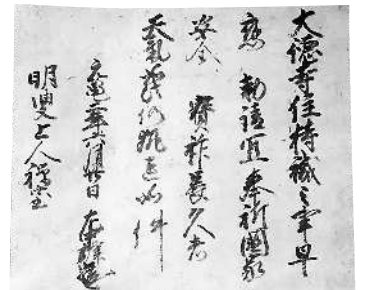 大德寺住持職之事早
應 勅請宜奉祈國家
安全 寶祚長久者
天氣如此仍執達如件
六月廿日
明叟上人禅室